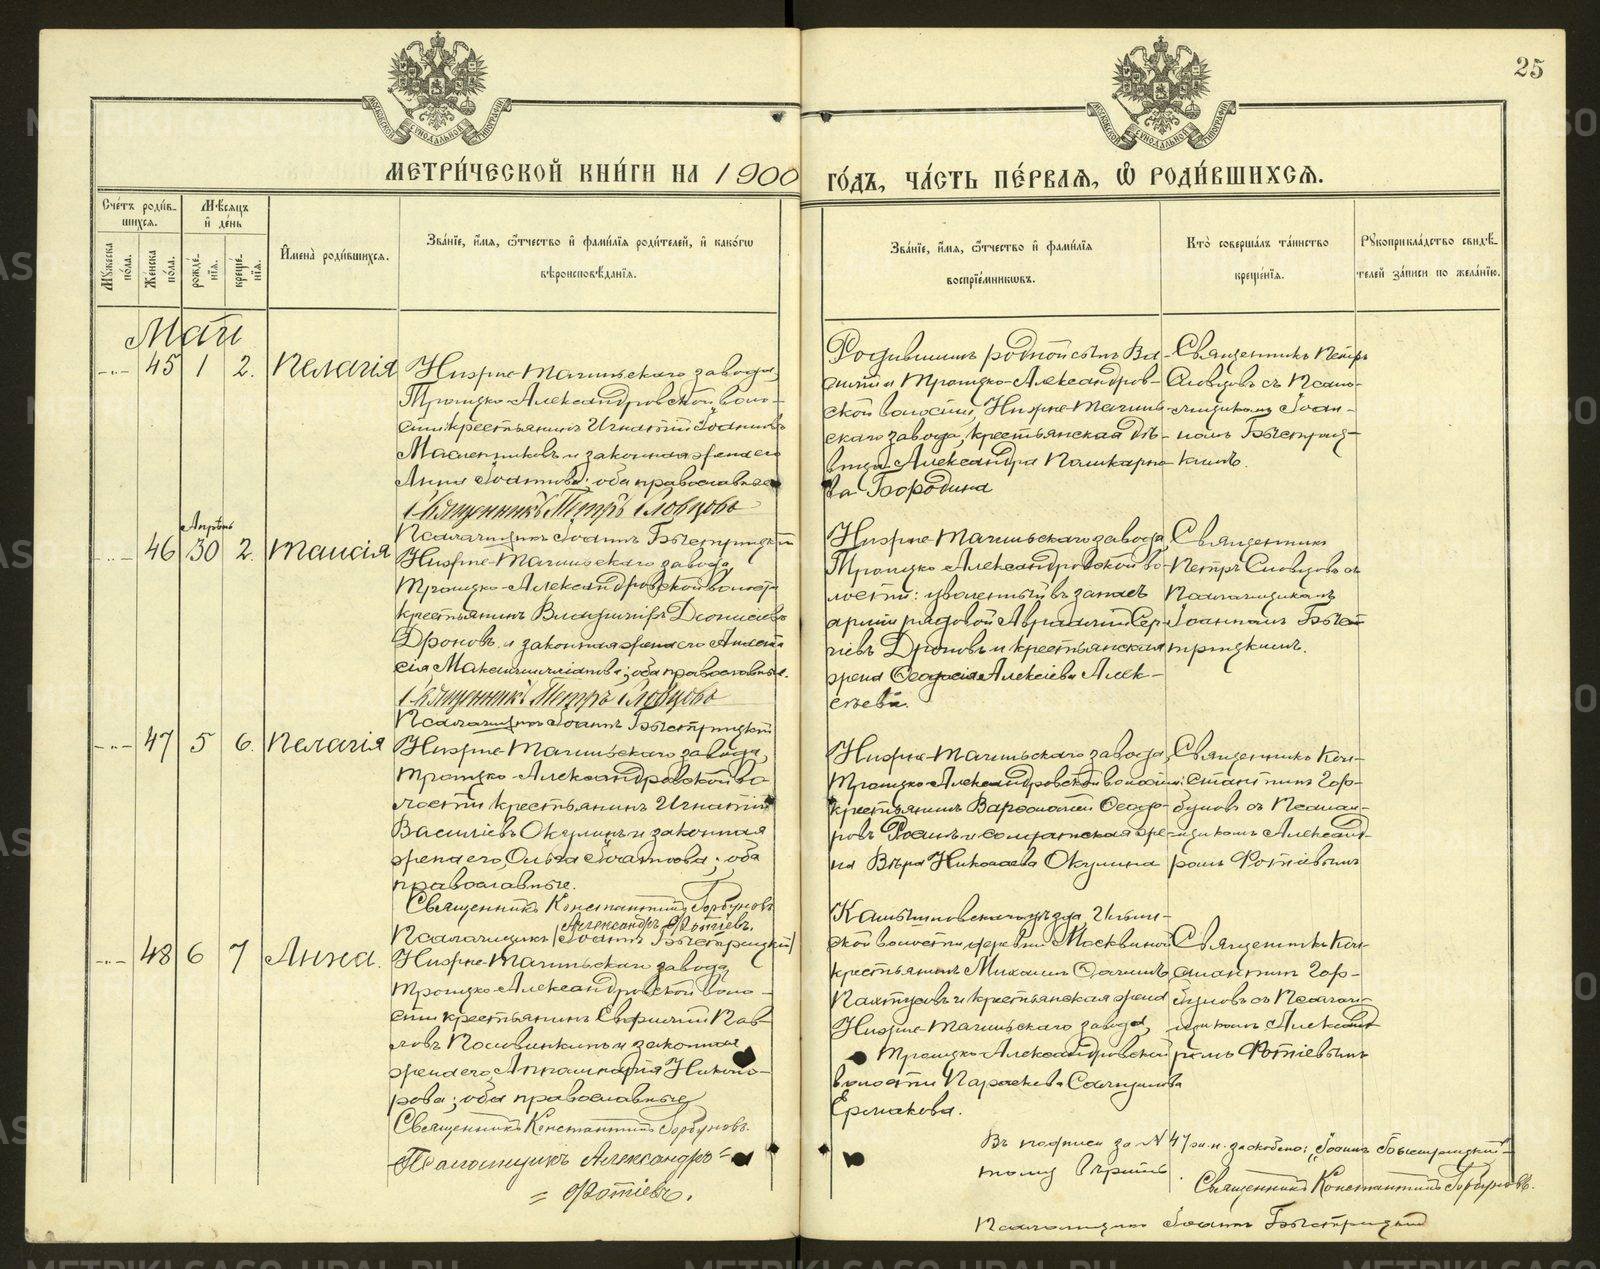 25
МЕТРИ́ЧЕСКОЙ КНИ́ГИ НА 1900
ГО́ДЪ, ЧА́СТЬ ПЕ́РВАѦ, Ѽ РОДИ́ВШИХСѦ.
Сче́тъ роди́в-
шихсѧ.
Мѣсѧцъ
и҆ де́нь
Мꙋ́жеска по́ла.
Же́нска по́ла.
рожде́-нїѧ.
креще́-нїѧ.
И҆мена̀ роди́вшихсѧ.
Зва́нїе, и҆́мѧ, ѻ҆́тчество и҆ фами́лїѧ роди́телей, и҆ како́гѡ
вѣроисповѣ́данїѧ.
Зва́нїе, и҆́мѧ, ѻ҆́тчество и҆ фами́лїѧ
воспрїе́мникѡвъ.
Кто̀ соверша́лъ та́инство
креще́нїѧ.
Рꙋкоприкла́дство свидѣ́-
телей за́писи по жела́нїю.
Май
45 1 2. Пелагія
Нижне-Тагильскаго завода,
Троицко-Александровской воло-
сти крестьянинъ Игнатій Іоанновъ
Масленниковъ и законная жена его
Анна Іоаннова; оба православные
Священникъ Петръ Словцовъ
Псаломщикъ Іоаннъ Быстрицкій
Родившимъ родной сынъ Ва-
силій и Троицко-Александров-
ской волости, Нижне-Тагиль-
скаго завода, крестьянская дѣ-
вица Александра Поликарпо-
ва Бородина
Священникъ Петръ
Словцовъ съ Псало-
мщикомъ Іоан-
номъ Быстриц-
кимъ.
Апрѣль
46 30 2. Таисія
Нижне-Тагильскаго завода,
Троицко-Александровской волости
крестьянинъ Владиміръ Діонисіевъ
Дроновъ и законная жена его Анаста-
сія Максимиліанова; оба православные.
Священникъ Петръ Словцовъ
Псаломщикъ Іоаннъ Быстрицкій
Нижне-Тагильскаго завода,
Троицко Александровской во-
лости: уволенный въ запасъ
арміи рядовой Аркадій Сер-
гіевъ Дроновъ и крестьянская
жена Ѳеодосія Алексіева Алек-
сѣева.
Священникъ
Петръ Словцовъ съ
Псаломщикомъ
Іоанномъ Быс-
трицкимъ.
47 5 6. Пелагія
Нижне-Тагильскаго завода,
Троицко-Александровской во-
лости крестьянинъ Игнатій
Василіевъ Окулинъ и законная
жена его, Ольга Іоаннова; оба
православные.
Священникъ Константинъ Горбуновъ
Александръ Фотіевъ.
Псаломщикъ (Іоаннъ Быстрицкій)
Нижне-Тагильскаго завода,
Троицко-Александровской волости:
крестьянинъ Варѳоломей Ѳеодо-
ровъ и солдатская же-
на Вѣра Николаева Окулина
Священникъ Кон-
стантинъ Гор-
буновъ съ Псалом-
щикомъ Александ-
ромъ Фотіевымъ
48 6 7 Анна.
Нижне-Тагильскаго завода,
Троицко-Александровской воло-
сти крестьянинъ Евфимій Пав-
ловъ Половинкинъ и законная
жена его, Апполинарія Никано-
рова; оба православные
Священникъ Константинъ Горбуновъ.
Псаломщикъ Александръ=
= Фотіевъ.
Камышловскаго уѣзда
ской волости деревни Москвиной
крестьянинъ Михаилъ
Пахтусовъ и крестьянская жена
Нижне-Тагильскаго завода,
Троицко-Александровской
волости Параскева
Ермакова.
Священникъ Кон-
стантинъ Гор-
буновъ съ Псалом-
щикомъ Александ-
ромъ Фотіевымъ
Въ подписи за № 47 заскоблено: „Іоаннъ Быстрицкій"
тому вѣрить.
Священникъ Константинъ Горбуновъ.
Псаломщикъ Іоаннъ Быстрицкій